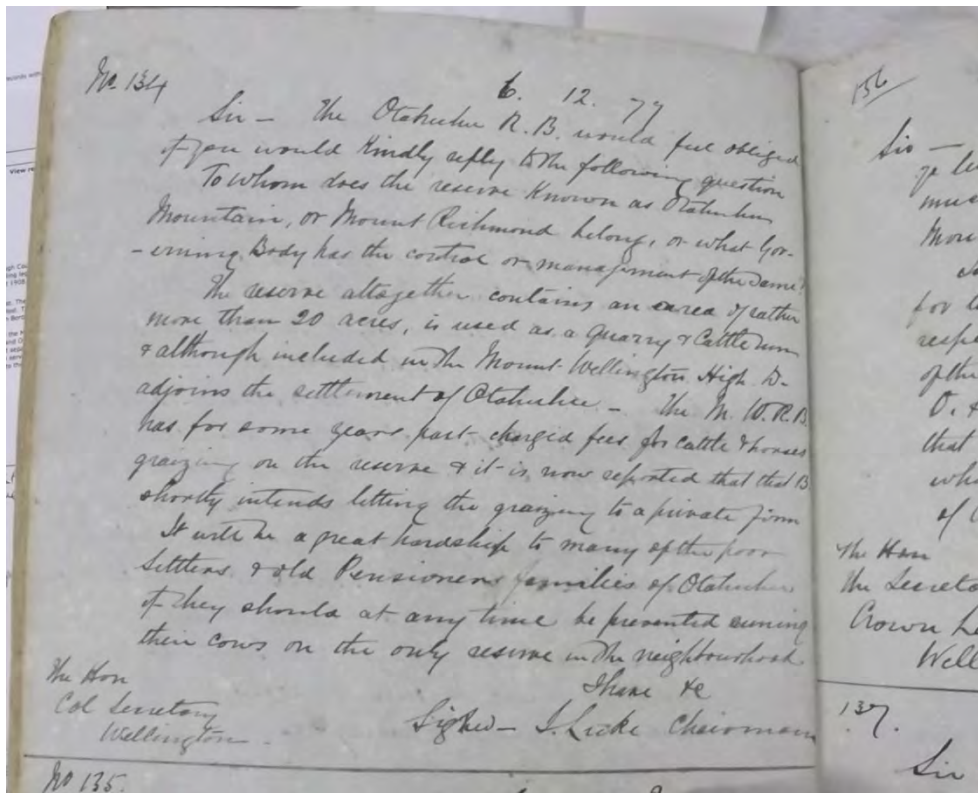 No 134
6. 12. 77
Sir - The Otahuhu R. B. would feel obliged
if you would Kindly reply to the following question
To whom does the reserve Known as Otahuhu
Mountain, or Mount Richmond belong, or what Gov-
-erning Body has the control or management of the same?
The reserve altogether contains an area of rather
more than 20 acres, is used as a quarry & Cattle run
& although included in the Mount Wellington High. D-
adjoins the settlement of Otahuhu - The M. W. R. B.
has for some years past charged fees for cattle & horses
graizing on the reserve & it is now reported that that B
shortly intends letting the graizing to a private firm
It will be a great hardship to many of the poor
Settlers & old Pensioners families of Otahuhu
if they should at any time be prevented running
their cows on the only reserve in the neighbourhood
I have &c
The Hon
Col Secretary
Wellington
Signed - Chairman
No 135.
136
Sir -
must
for
of the
that
of
The Hon
the Secreta
Crown La
Well
137.
Sir